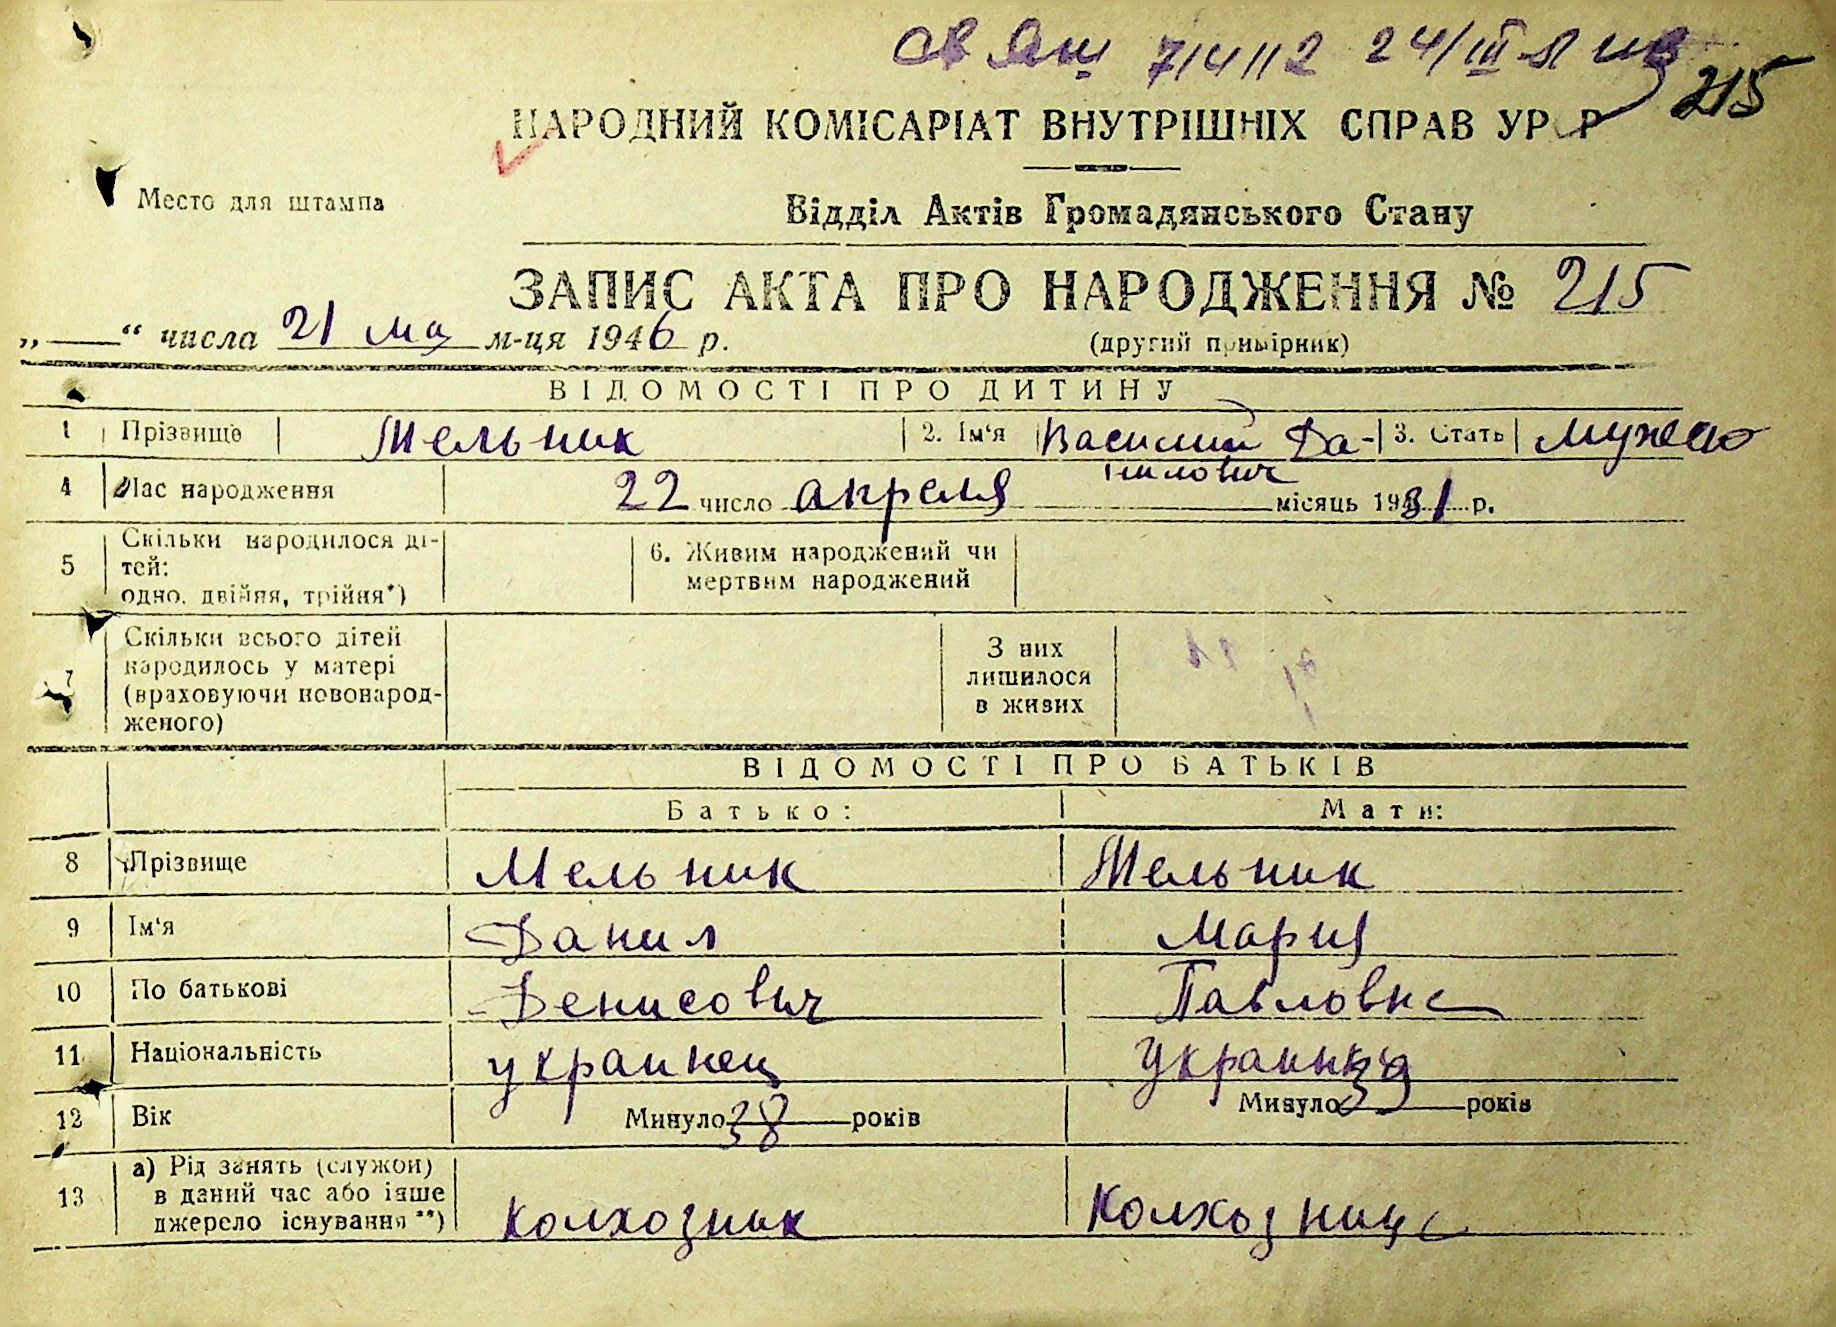 св Яш 714112 24/III-51
215
НАРОДНИЙ КОМІСАРІАТ ВНУТРІШНІХ СПРАВ УР Р
Место для штампа
Відділ Актів Громадянського Стану
ЗАПИС АКТА ПРО НАРОДЖЕННЯ № 215
„——“ числа 21 мая м-ця 1946 р.
(другий примірник)
ВІДОМОСТІ ПРО ДИТИНУ
1 Прізвище Мельник 2. Ім'я Василий Да- 3. Стать мужско
нилович
4 Час народження 22 число апреля місяць 1931 р.
5 Скільки народилося ді-
тей:
одно, двійня, трійня*)
6. Живим народжений чи
мертвим народжений
7 Скільки всього дітей
народилось у матері
(враховуючи новонарод-
женого)
З них
лишилося
в живих
ВІДОМОСТІ ПРО БАТЬКІВ
Батько: Мати:
8 Прізвище Мельник Мельник
9 Ім'я Данил Мария
10 По батькові Денисович Павловна
11 Національність украинец украинка
12 Вік Минуло 38 років Минуло 39 років
13 а) Рід занять (служби)
в даний час або інше
джерело існування **)
колхозник колхозница